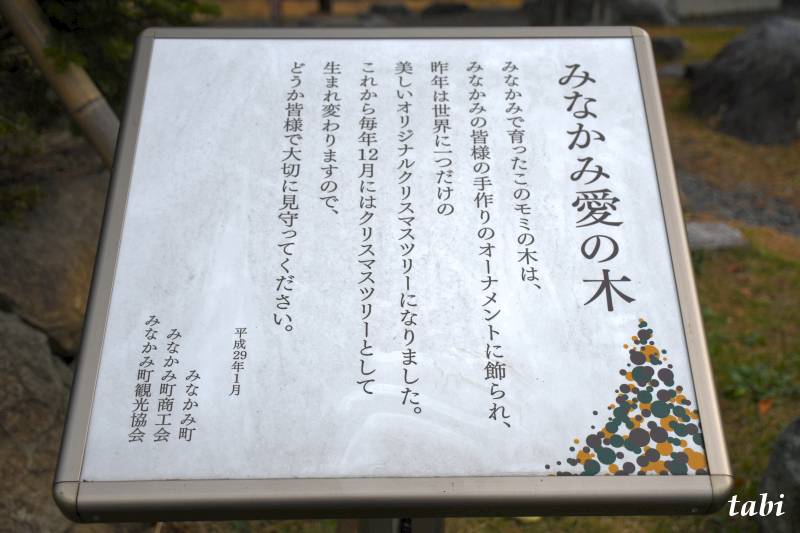 みなかみ愛の木
みなかみで育ったこのモミの木は、
みなかみの皆様の手作りのオーナメントに飾られ、
昨年は世界に一つだけの
美しいオリジナルクリスマスツリーになりました。
これから毎年12月にはクリスマスツリーとして
生まれ変わりますので、
どうか皆様で大切に見守ってください。
平成29年1月
みなかみ町
みなかみ町商工会
みなかみ町観光協会
tabi